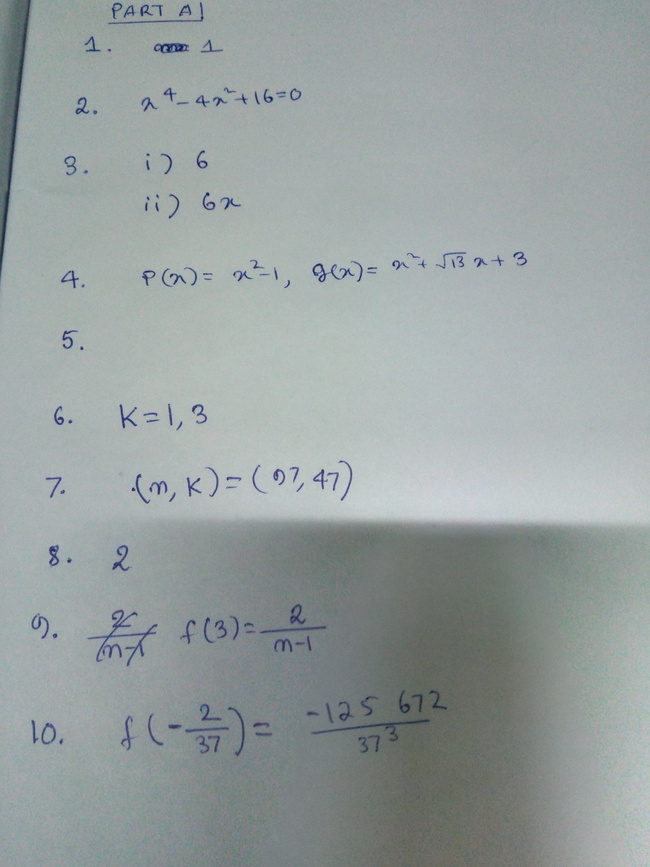 PART A|
1. 1
2. x⁴-4x²+16=0
3. i) 6
ii) 6x
4. P(x)= x²-1, g(x)= x²+√13 x+3
5.
6. K=1, 3
7. (n, K)=(97, 47)
8. 2
9. f(3)=2/(n-1)
10. f(-2/37)= -125 672/37³